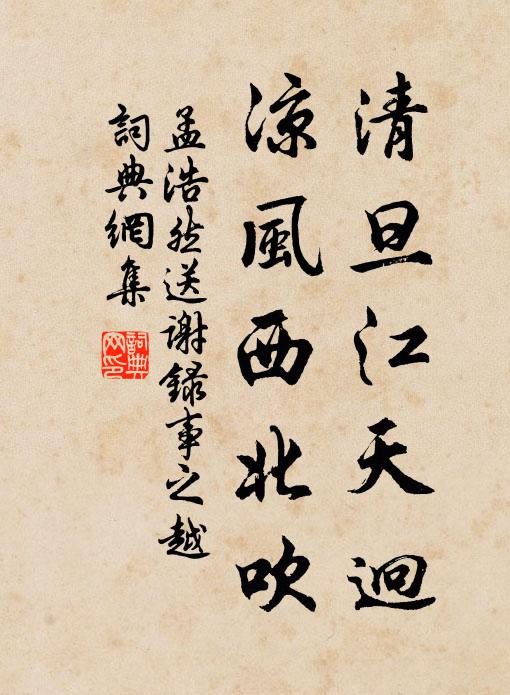 清旦江天迥
涼風西北吹
孟浩然送謝錄事之越
詞典網集
詞典
网印